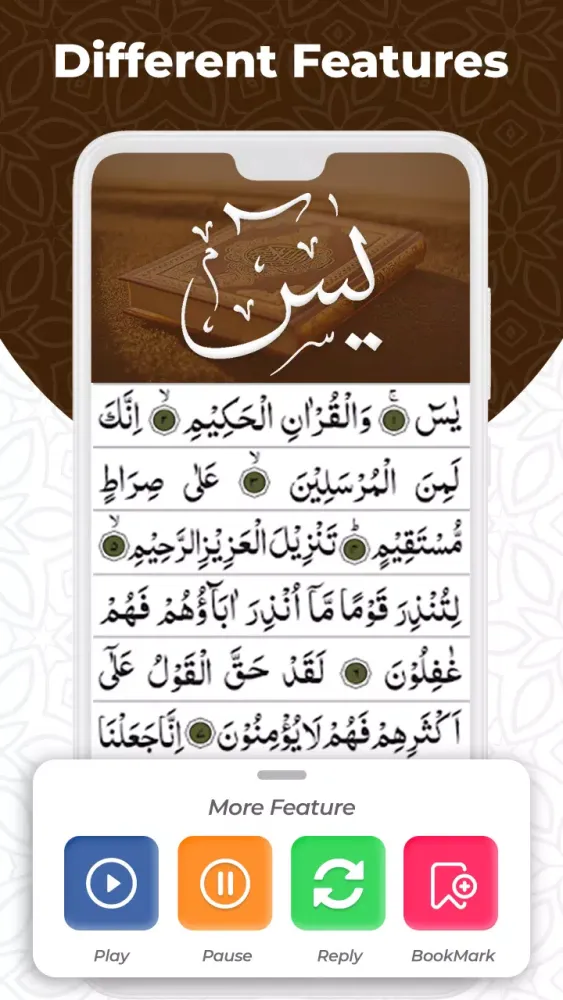 Different Features
يس
يٰسٓ ۝١ وَالْقُرْاٰنِ الْحَكِيْمِ ۝٢ اِنَّكَ
لَمِنَ الْمُرْسَلِيْنَ ۝٣ عَلٰى صِرَاطٍ
مُّسْتَقِيْمٍ ۝٤ تَنْزِيْلَ الْعَزِيْزِ الرَّحِيْمِ ۝٥
لِتُنْذِرَ قَوْمًا مَّآ اُنْذِرَ اٰبَآؤُهُمْ فَهُمْ
غٰفِلُوْنَ ۝٦ لَقَدْ حَقَّ الْقَوْلُ عَلٰٓى
اَكْثَرِهِمْ فَهُمْ لَا يُؤْمِنُوْنَ ۝٧ اِنَّا جَعَلْنَا
More Feature
Play Pause Reply BookMark